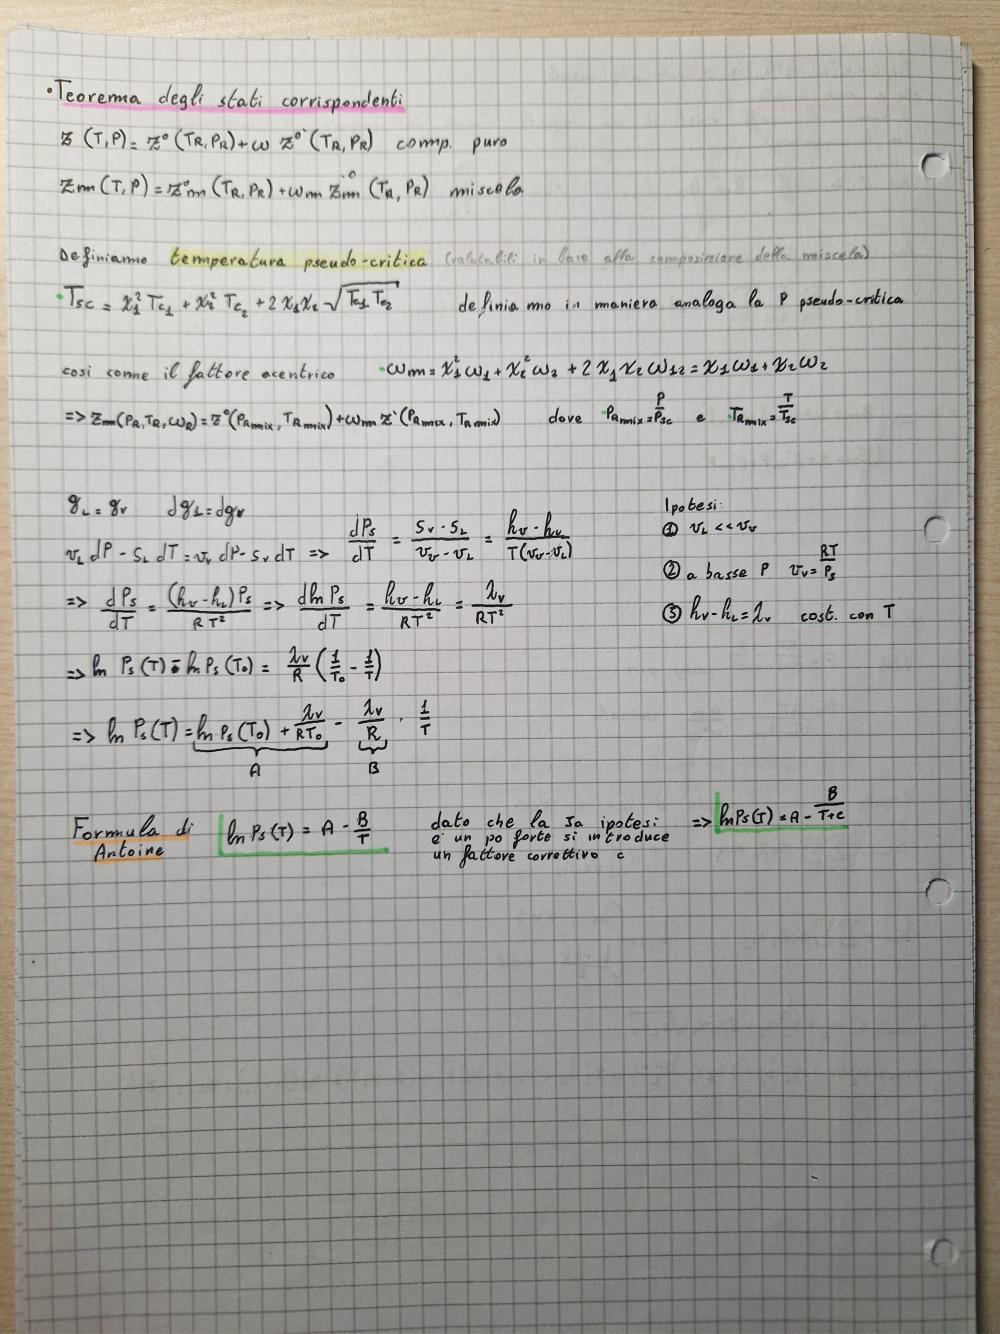 • Teorema degli stati corrispondenti
z (T,P) = z° (TR, PR) + ω z°' (TR, PR) comp. puro
zm (T,P) = z°m (TR, PR) + ωm z'°m (TR, PR) miscela
Definiamo temperatura pseudo-critica (valutabili in base alla composizione della miscela)
• Tsc = x₁² Tc₁ + x₂² Tc₂ + 2 x₁x₂ √(Tc₁ Tc₂) definiamo in maniera analoga la P pseudo-critica
così come il fattore acentrico • ωm = x₁² ω₁ + x₂² ω₂ + 2 x₁ x₂ ω₁₂ = x₁ω₁ + x₂ω₂
=> zm (PR, TR, ωR) = z° (PRmix, TRmix) + ωm z' (PRmix, TRmix) dove PRmix = P/Psc e TRmix = T/Tsc
gL = gv dgL = dgv
vL dP - sL dT = vv dP - sv dT => dPs/dT = (sv - sL)/(vv - vL) = (hv - hL)/(T(vv - vL))
=> dPs/dT = (hv - hL)Ps/RT² => dln Ps/dT = (hv - hL)/RT² = λv/RT²
=> ln Ps(T) - ln Ps(T₀) = λv/R (1/T₀ - 1/T)
=> ln Ps(T) = ln Ps(T₀) + λv/RT₀ - λv/R · 1/T
A B
Ipotesi:
① vL << vv
② a basse P vv = RT/Ps
③ hv - hL = λv cost. con T
Formula di
Antoine
ln Ps(T) = A - B/T
dato che la 3a ipotesi
e' un po forte si introduce
un fattore correttivo c
=> ln Ps(T) = A - B/(T+c)